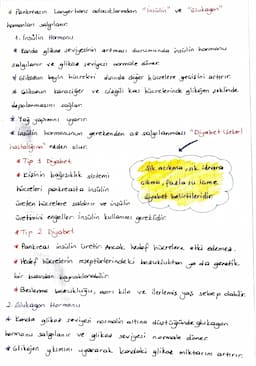 * Pankreasın Langerhans adacıklarından "İnsülin" ve "Glukagon"
hormonları salgılanır.
1. İnsülin Hormonu
* Kanda glikoz seviyesinin artması durumunda insülin hormonu
salgılanır ve glikoz seviyesi normale döner.
* Glikozun beyin hücreleri dışında diğer hücrelere geçişini artırır.
* Glikozun karaciğer ve çizgili kas hücrelerinde glikojen şeklinde
depolanmasını sağlar.
* Yağ yapımını uyarır.
* İnsülin hormonunun gerekenden az salgılanması "Diyabet (şeker
hastalığı)na" neden olur.
* Tip 1 Diyabet
* Kişinin bağışıklık sistemi
hücreleri pankreasta insülin
üreten hücrelere saldırır ve insülin
üretimini engeller. İnsülin kullanımı gereklidir.
Sık acıkma, sık idrara
çıkma, fazla su içme
diyabet belirtileridir.
* Tip 2 Diyabet
* Pankreas insülin üretir. Ancak hedef hücrelere etki edemez.
* Hedef hücrelerin reseptörlerindeki bozukluktan ya da genetik
bir kaynaklanabilir.
* Beslenme bozukluğu, aşırı kilo ve ilerlemiş yaş sebep olabilir.
2. Glukagon Hormonu
* Kanda glikoz seviyesi normalin altına düştüğünde glukagon
hormonu salgılanır ve glikoz seviyesi normale döner.
* Glikojen yıkımını uyararak kandaki glikoz miktarını artırır.